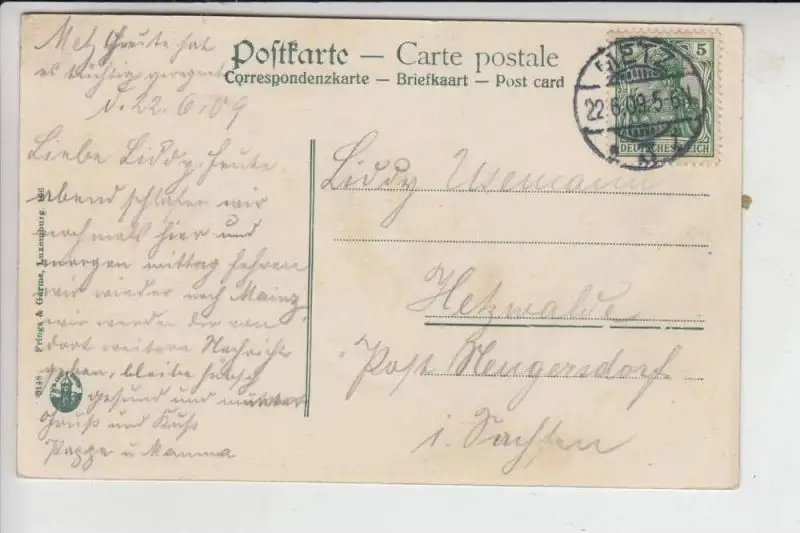 Postkarte — Carte postale
Correspondenzkarte — Briefkaart — Post card
Metz Heute hat
es tüchtig geregnet
d. 22.6.09
Liebe Liddy, heute
abend schlafen wir
nochmals hier und
morgen mittag fahren
wir wieder nach Mainz
wir werden dir von
dort weitere Nachricht
geben, bleibe hübsch
gesund und munter
Gruß und Kuß
Pappa u Mamma
METZ
22.6.09.5-6N
5
DEUTSCHES REICH
Liddy
Hetzwalde
Post Neugersdorf
i. Sachsen
Frings & Germe, Luxemburg.